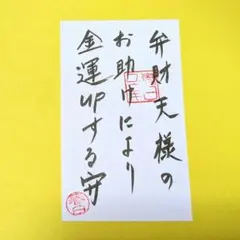 弁財天様の
お助けにより
金運UPする守